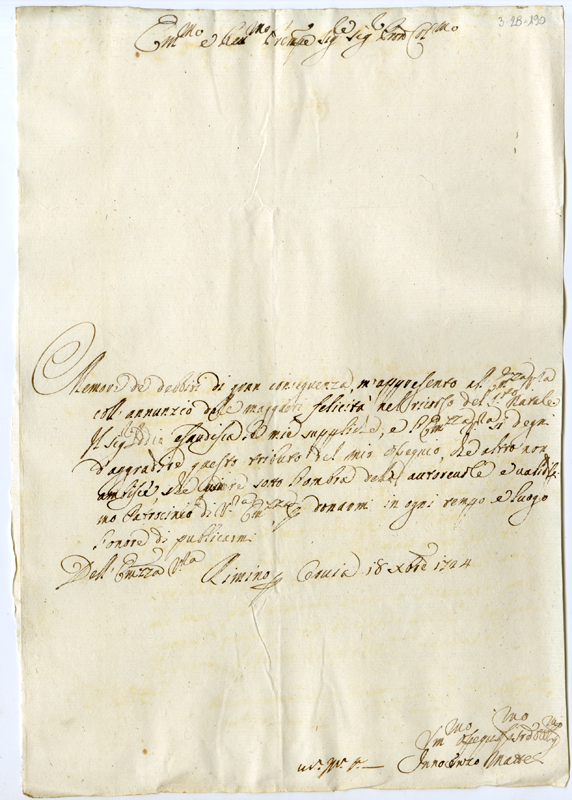 3-28-190
Em.mo e Rev.mo Sig.e Sig.e Pron Col.mo
Memore de debiti di gran conseguenza, m'appresento all' Em.za V.ra
coll' annunzio delle maggiori felicità nel ricorso del S.to Natale
Il Sig. Iddio esaudisca le mie suppliche, e l' Em.za V.ra si degni
d'aggradire questo tributo del mio ossequio, che altro non
ambisce che vivere sotto l'ombra dell' autorevole e validis.
mo Patrocinio di V.ra Em.za donarmi in ogni tempo e luogo
l'onore di publicarmi
Dell' Em.za V.ra
Rimino Cervia 18 Xbre 1724
Um.mo Osseq.mo
Innocenzo Mattei